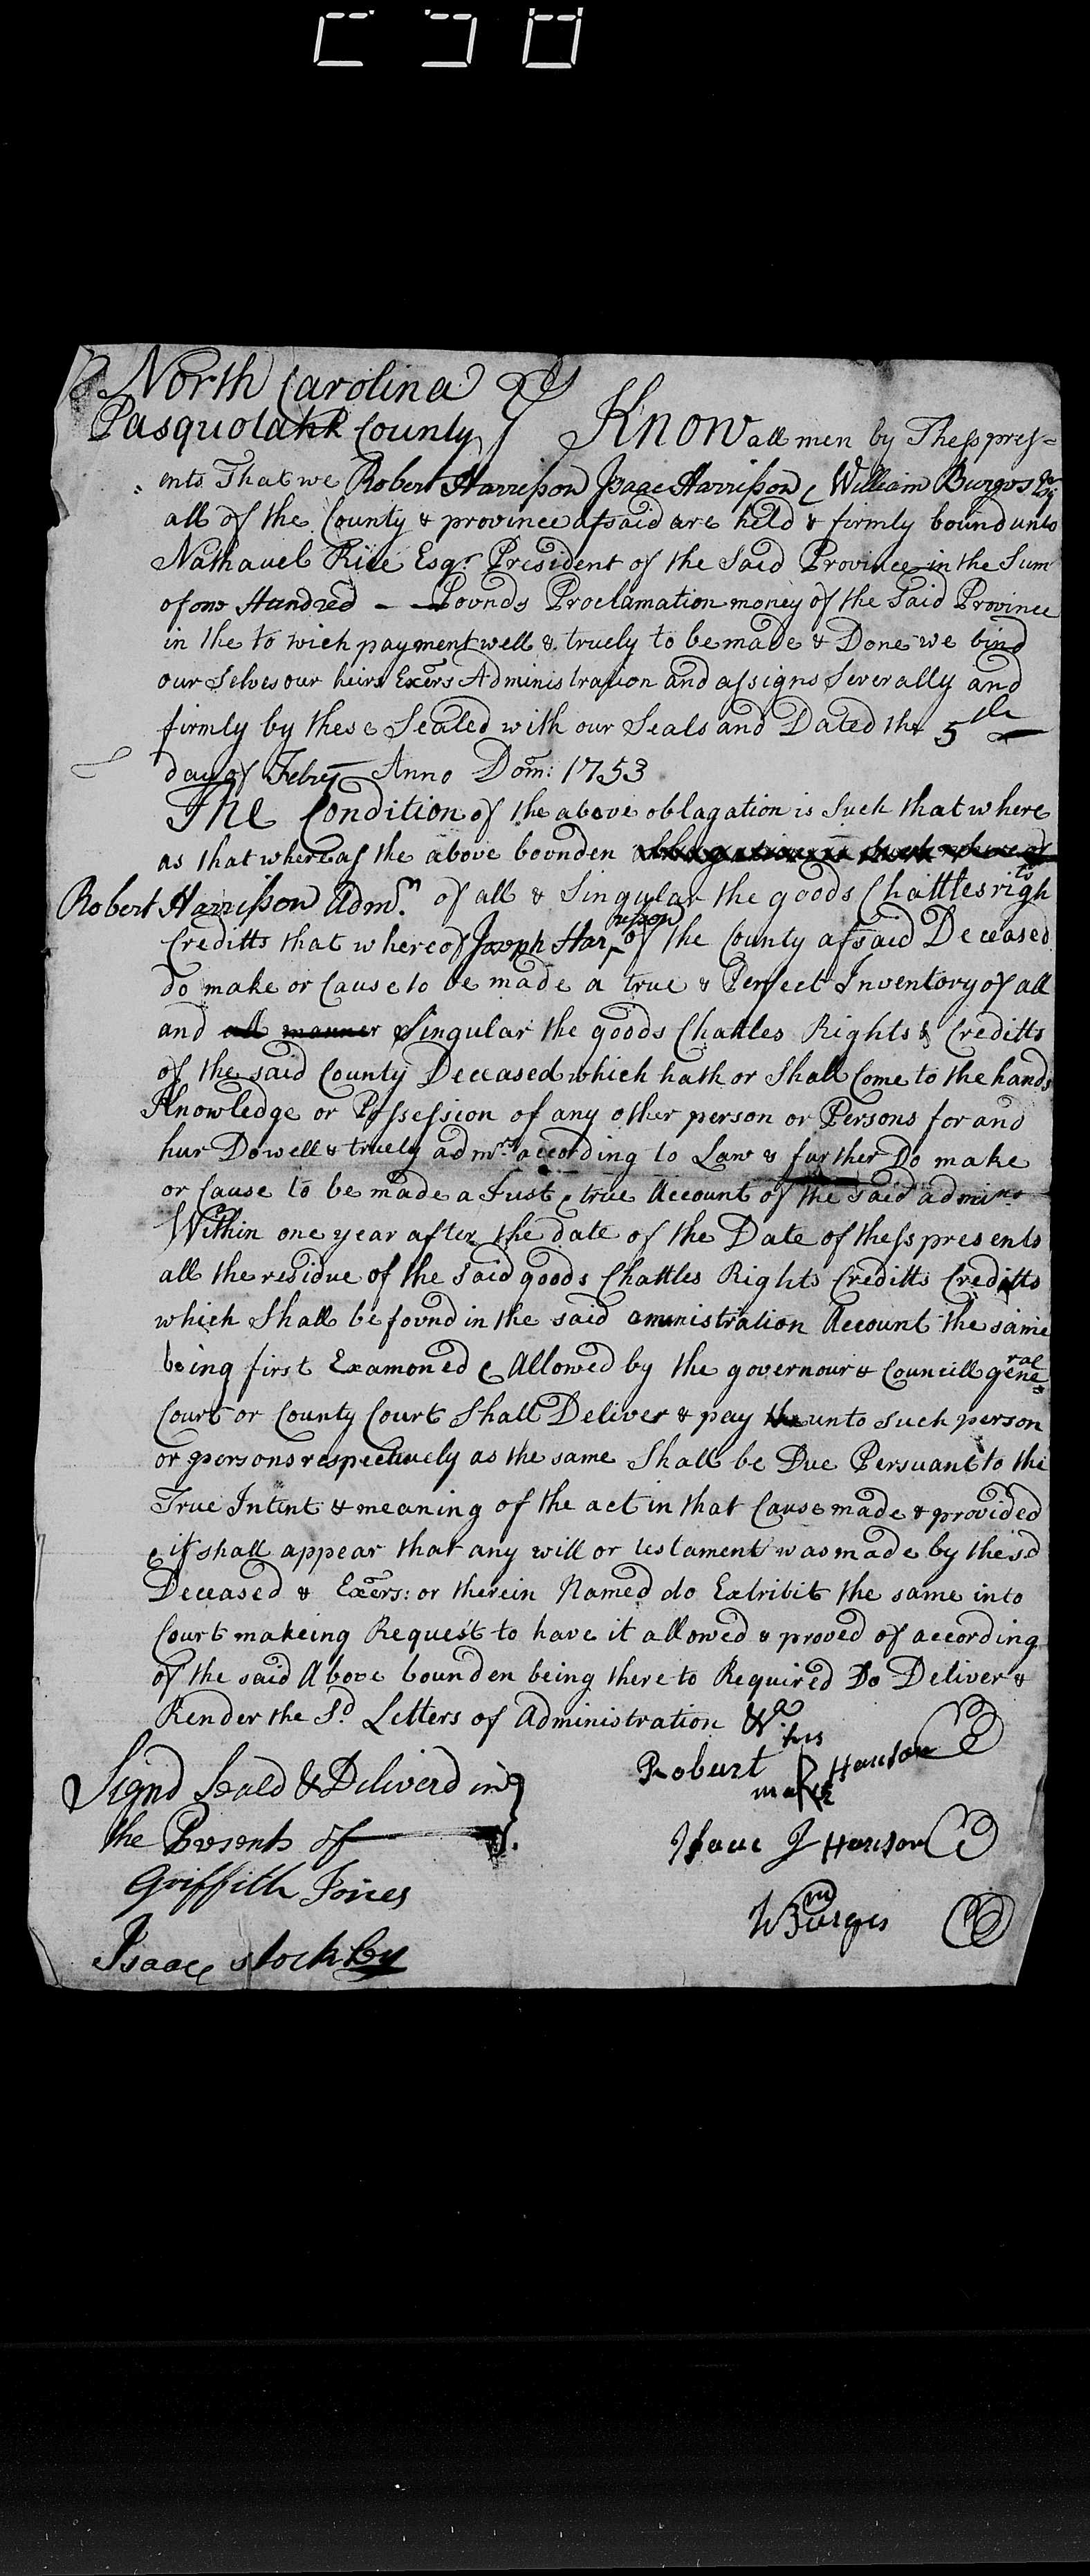 North Carolina
Pasquotank County } Know all men by Thess pres=
ents That we Robert Harrisson Isaac Harrisson & William Burges
all of the County & province afsaid are held & firmly bound unto
Nathanel Rice Esqr. President of the Said Province in the Sum
of one Handred — — Pounds Proclamation money of the Said Province
in the to wich payment well & truely to be made & Done we bind
our Selves our heirs Exers Administration and assigns Severally and
firmly by these Sealed with our Seals and Dated the 5th
day of Febry Anno Dom: 1753
The Condition of the above oblagation is Such that where
as that whereas the above bounden
Robert Harrisson Admn. of all & Singular the goods Chattles rights
Creditts that whereof Joseph Harrisson of the County afsaid Deceased
do make or Cause to be made a true & Perfect Inventory of all
and all manner Singular the goods Chattles Rights & Creditts
of the said County Deceased which hath or Shall Come to the hands
Knowledge or Possession of any other person or Persons for and
hur Do well & truely admrs according to Law & further Do make
or Cause to be made a Just & true Account of the said admins
Within one year after the date of the Date of thess presents
all the residue of the said goods Chattles Rights Creditts Creditts
which Shall be found in the said aministration Account the same
being first Examoned & Allowed by the governour & Councill general
Court or County Court Shall Deliver & pay the unto such person
or persons respectively as the same Shall be Due Persuant to the
True Intent & meaning of the act in that Cause made & provided
& if shall appear that any will or testament was made by the sd
Deceased & Exers: or therein Named do Exhibit the same into
Court makeing Request to have it allowed & proved of according
of the said Above bounden being there to Required Do Deliver &
Render the Sd Letters of Administration &c
Robert his R mark Harison
Signd Seald & Deliverd in }
the Presents of
Isaac I Harison
Griffith Jones
Wm Burges
Isaac Stockley